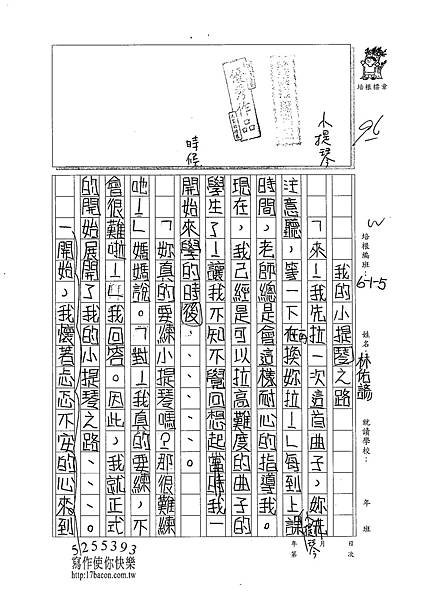 培根楷率
96
優秀作品
小提琴
時候
W
培根編班：
61-5
姓名
林佑諭
就讀學校：
年 班
年 月 日
第 次
我的小提琴之路
「來！我先拉一次這首曲子，妳先
注意聽，等一下在換妳拉！」每到上課
再
小提琴
時間，老師總是會這樣耐心的指導我。
現在，我已經是可以拉高難度的曲子的
學生了！讓我不知不覺回想起當時我一
開始來學的時後、、、。
「妳真的要練小提琴嗎？那很難練
吔！」媽媽說。「對！我真的要練，不
會很難啦！」我回答。因此，我就正式
的開始展開了我的小提琴之路、、、。
一開始，我懷著忐忑不安的心來到
5255393
寫作使你快樂
http://17bacon.com.tw